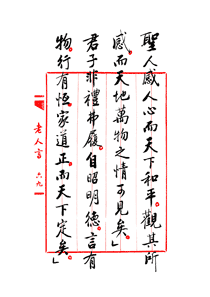 聖人感人心而天下和平。觀其所
感而天地萬物之情可見矣」
君子非禮弗履。自昭明德。言有
物。行有恆。家道正。而天下定矣。」
老人言 六九